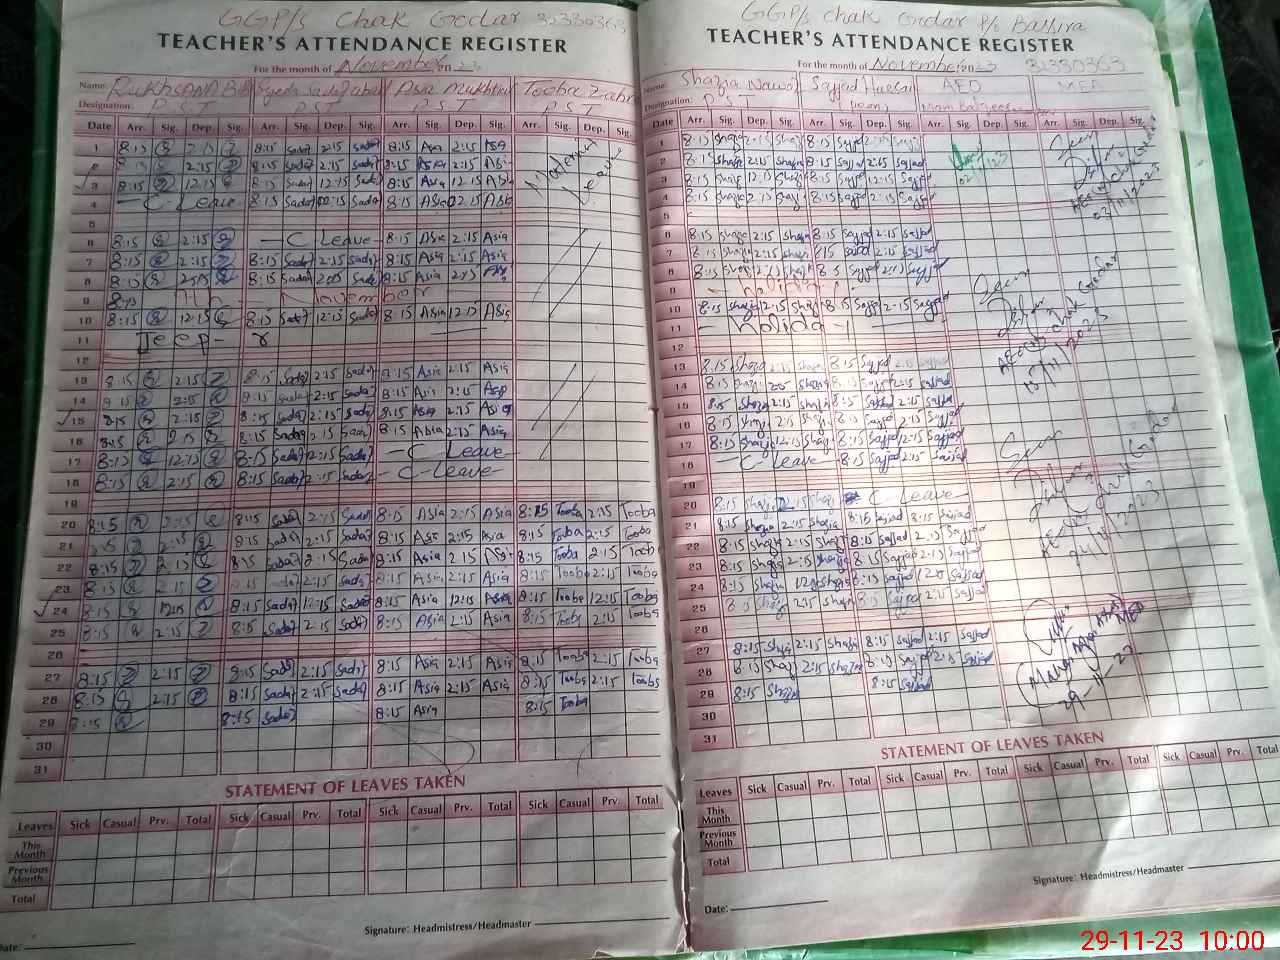 GGP/s Chak Gedar 31330363
TEACHER'S ATTENDANCE REGISTER
For the month of November on 23
Name: Rukhsana Bibi Syeda Sada Zahra Asia Mukhtiar Tooba Zahra
Designation: P.S.T P.S.T P.S.T P.S.T
Date Arr. Sig. Dep. Sig. Arr. Sig. Dep. Sig. Arr. Sig. Dep. Sig. Arr. Sig. Dep. Sig.
1 8:15 2:15 8:15 Sada 2:15 Sada 8:15 Asia 2:15 Asia
2 8:15 2:15 8:15 Sada 2:15 Sada 8:15 Asia 2:15 Asia
3 8:15 12:15 8:15 Sada 12:15 Sada 8:15 Asia 12:15 Asia
4 - C - Leave 8:15 Sada 2:15 Sada 8:15 Asia 2:15 Asia
Leave
5
6 8:15 2:15 - C Leave - 8:15 Asia 2:15 Asia
7 8:15 2:15 8:15 Sada 2:15 Sada 8:15 Asia 2:15 Asia
8 8:15 2:15 8:15 Sada 2:15 Sada 8:15 Asia 2:15 Asia
9 9th - November
10 8:15 12:15 8:15 Sada 12:15 Sada 8:15 Asia 12:15 Asia
11
12
13 8:15 2:15 8:15 Sada 2:15 Sada 8:15 Asia 2:15 Asia
14 8:15 2:15 8:15 Sada 2:15 Sada 8:15 Asia 2:15 Asia
15 8:15 2:15 8:15 Sada 2:15 Sada 8:15 Asia 2:15 Asia
16 8:15 2:15 8:15 Sada 2:15 Sada 8:15 Asia 2:15 Asia
17 8:15 12:15 8:15 Sada 12:15 Sada - C Leave
18 8:15 2:15 8:15 Sada 2:15 Sada - C - Leave
19
20 8:15 2:15 8:15 Sada 2:15 Sada 8:15 Asia 2:15 Asia 8:15 Tooba 2:15 Tooba
21 8:15 2:15 8:15 Sada 2:15 Sada 8:15 Asia 2:15 Asia 8:15 Tooba 2:15 Tooba
22 8:15 2:15 8:15 Sada 2:15 Sada 8:15 Asia 2:15 Asia 8:15 Tooba 2:15 Tooba
23 8:15 2:15 8:15 Sada 2:15 Sada 8:15 Asia 2:15 Asia 8:15 Tooba 2:15 Tooba
24 8:15 12:15 8:15 Sada 12:15 Sada 8:15 Asia 12:15 Asia 8:15 Tooba 12:15 Tooba
25 8:15 2:15 8:15 Sada 2:15 Sada 8:15 Asia 2:15 Asia 8:15 Tooba 2:15 Tooba
26
27 8:15 2:15 8:15 Sada 2:15 Sada 8:15 Asia 2:15 Asia 8:15 Tooba 2:15 Tooba
28 8:15 2:15 8:15 Sada 2:15 Sada 8:15 Asia 2:15 Asia 8:15 Tooba 2:15 Tooba
29 8:15 8:15 Sada 8:15 Asia 8:15 Tooba
30
31
STATEMENT OF LEAVES TAKEN
Leaves Sick Casual Prv. Total Sick Casual Prv. Total Sick Casual Prv. Total Sick Casual Prv. Total
This Month
Previous Month
Total
Signature: Headmistress/Headmaster
Date:
GGP/s chak Gedar P/o Bakhra
TEACHER'S ATTENDANCE REGISTER
For the month of November on 23 31330363
Name: Shazia Nawaz Sajjad Hussain AEO MEA
Designation: P.S.T (peon)
Date Arr. Sig. Dep. Sig. Arr. Sig. Dep. Sig. Arr. Sig. Dep. Sig. Arr. Sig. Dep. Sig.
1 8:15 Shazia 2:15 Shazia 8:15 Sajjad
2 8:15 Shazia 2:15 Shazia 8:15 Sajjad 2:15 Sajjad
3 8:15 Shazia 12:15 Shazia 8:15 Sajjad
4 8:15 Shazia 2:15 8:15 Sajjad 2:15 Sajjad
Seen
02/11/2023
5
6 8:15 Shazia 2:15 Shazia 8:15 Sajjad 2:15 Sajjad
7 8:15 Shazia 2:15 Shazia 8:15 Sajjad 2:15 Sajjad
8 8:15 Shazia 2:15 Shazia 8:15 Sajjad 2:15 Sajjad
9 - holiday
10 8:15 Shazia 12:15 Shazia 8:15 Sajjad 2:15 Sajjad
11 - holiday
Seen
12
13 8:15 Shazia 8:15 Sajjad
14 8:15 Shazia 2:15 Shazia 8:15 Sajjad 2:15 Sajjad
15 8:15 Shazia 2:15 Shazia 8:15 Sajjad 2:15 Sajjad
16 8:15 2:15 Shazia 8:15 Sajjad 2:15 Sajjad
17 8:15 Shazia 12:15 Shazia 8:15 Sajjad 2:15 Sajjad
18 - C - Leave - 8:15 Sajjad 2:15 Sajjad
Seen
19
20 8:15 Shazia 2:15 Shazia C Leave
21 8:15 Shazia 2:15 Shazia 8:15 Sajjad 8:15 Sajjad
22 8:15 Shazia 2:15 Shazia 8:15 Sajjad 2:15 Sajjad
23 8:15 Shazia 2:15 Shazia 8:15 Sajjad 2:15 Sajjad
24 8:15 Shazia 12:15 Shazia 8:15 Sajjad 12:15 Sajjad
25 8:15 Shazia 2:15 Shazia 8:15 Sajjad 2:15 Sajjad
26
27 8:15 Shazia 2:15 Shazia 8:15 Sajjad 2:15 Sajjad
28 8:15 Shazia 2:15 Shazia 8:15 Sajjad 2:15 Sajjad
29 8:15 Shazia 8:15 Sajjad
MEA
29-11-23
30
31
STATEMENT OF LEAVES TAKEN
Leaves Sick Casual Prv. Total Sick Casual Prv. Total Sick Casual Prv. Total Sick Casual Prv. Total
This Month
Previous Month
Total
Signature: Headmistress/Headmaster
Date:
29-11-23 10:00